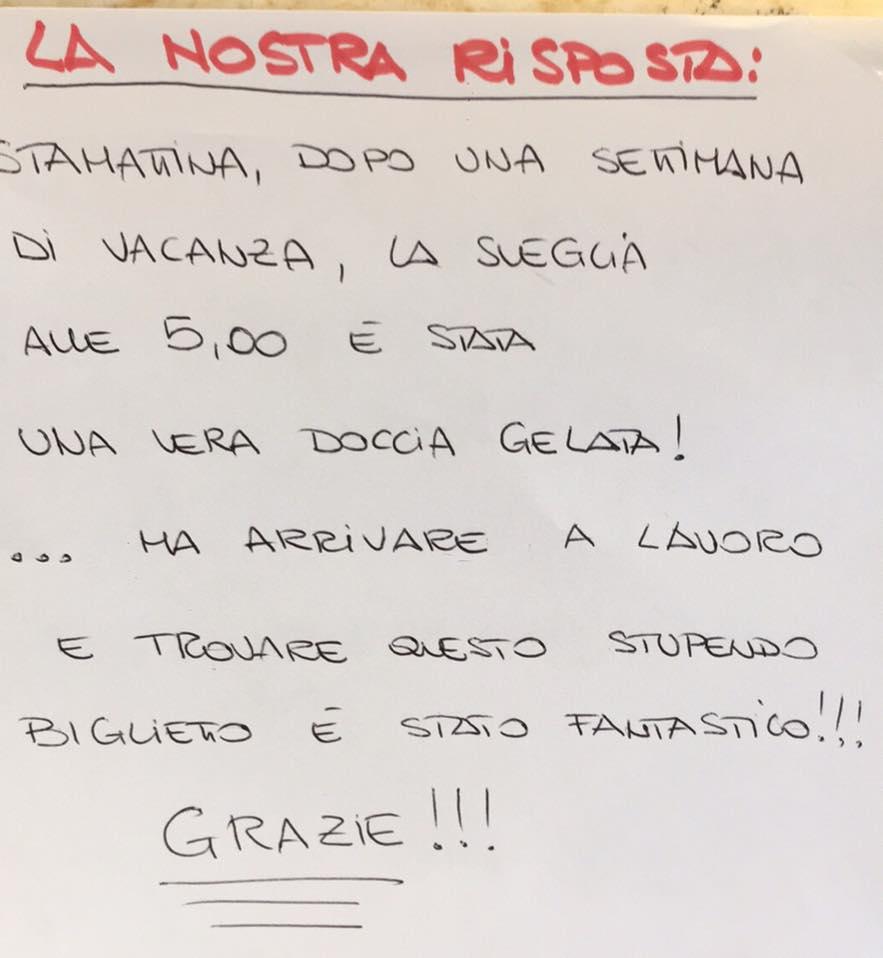 LA NOSTRA RISPOSTA:
STAMATTINA, DOPO UNA SETTIMANA
DI VACANZA, LA SVEGLIA
ALLE 5,00 È STATA
UNA VERA DOCCIA GELATA!
... MA ARRIVARE A LAVORO
E TROVARE QUESTO STUPENDO
BIGLIETTO È STATO FANTASTICO!!!
GRAZIE!!!